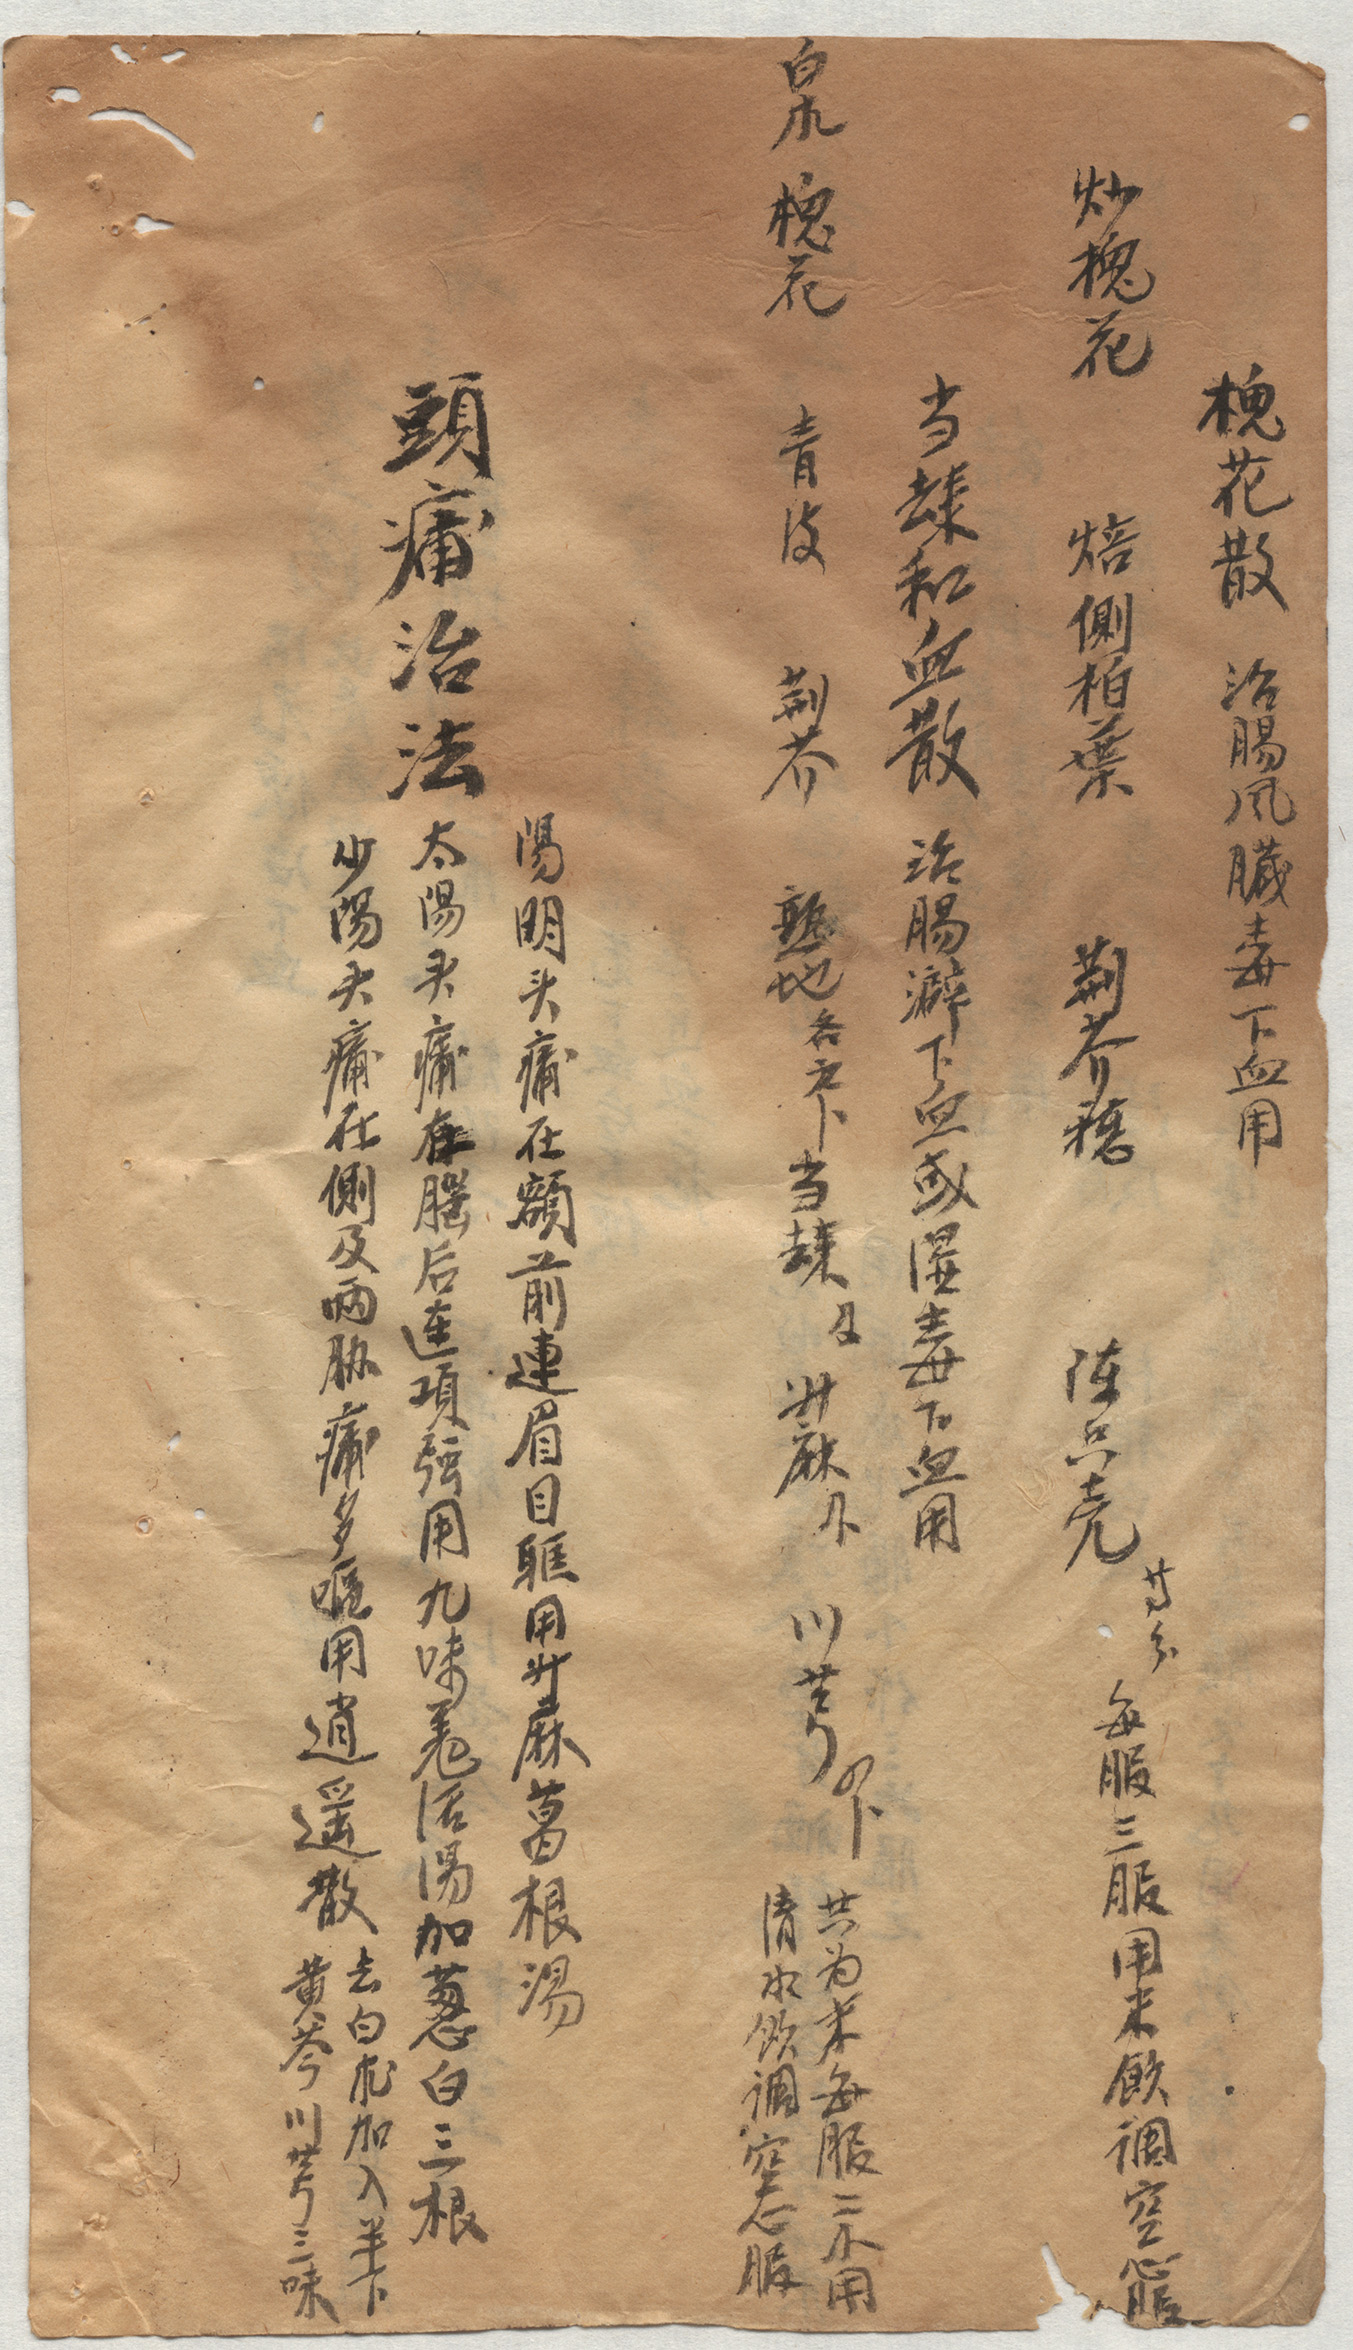 槐花散　治腸風臟毒下血用
炒槐花　焙側柏葉　荆芥穗　陈只壳　等分　每服三服用米飲調空心服
当歸和血散　治腸澼下血或湿毒下血用
白朮　槐花　青皮　荆芥　熟地　各　当歸　升麻　川芎
共为末每服二　用
清水飲調空心服
陽明头痛在額前連眉目眶用升麻葛根湯
頭痛治法
太陽头痛在腦后連項强用九味羌活湯加蔥白三根
少陽头痛在側及两胁痛多嘔用逍遥散
去白朮加入半下
黄芩川芎三味